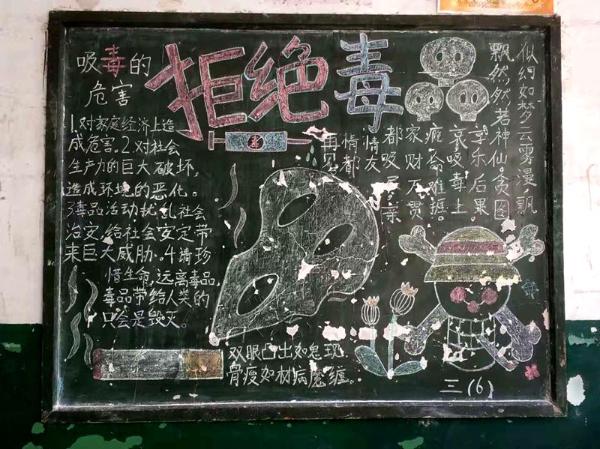 吸毒的
危害
拒绝毒
1.对家庭经济上造
成危害.2.对社会
生产力的巨大破坏,
造成环境的恶化.
3.毒品活动扰乱社会
治安给社会安定带
来巨大威胁.4.请珍
惜生命,远离毒品,
毒品带给人类的
只会是毁灭.
毒
似绚如梦云雾漫飘
飘然然若神仙贪图
享乐后果
哀吸毒上
瘾命难抵
家财万贯
都吸
亲
情友
情都
再见
双眼凹出如鬼现
骨瘦如材病魔缠.
三(6)